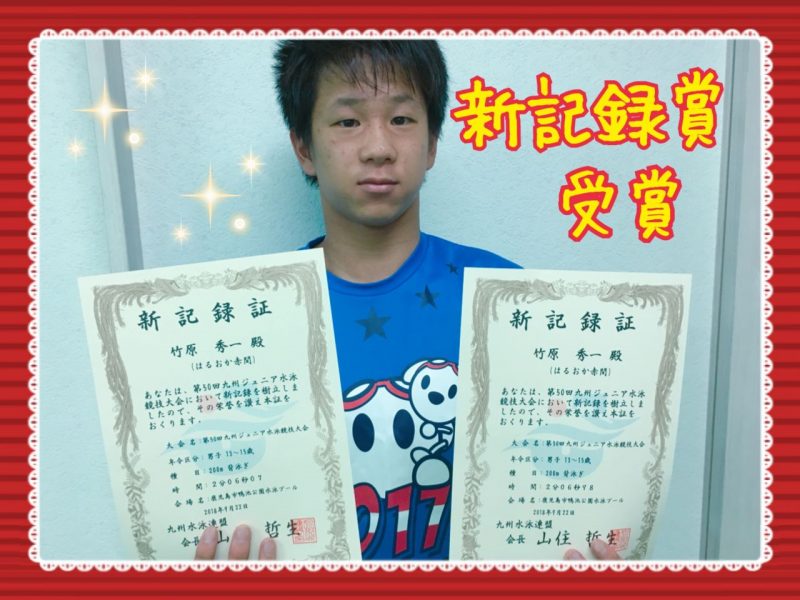 新記録賞
受賞
新記録証
竹原 秀一 殿
(はるおか赤間)
あなたは、第50回九州ジュニア水泳
競技大会において新記録を樹立しま
したので、その栄誉を讃え本証を
おくります。
大会名:第50回九州ジュニア水泳競技大会
年令区分:男子 13~15歳
種 目:200m 背泳ぎ
時 間:2分06秒07
会場名:鹿児島市鴨池公園水泳プール
2018年7月22日
九州水泳連盟
会長 山 哲生
新記録証
竹原 秀一 殿
(はるおか赤間)
あなたは、第50回九州ジュニア水泳
競技大会において新記録を樹立しま
したので、その栄誉を讃え本証を
おくります。
大会名:第50回九州ジュニア水泳競技大会
年令区分:男子 13~15歳
種 目:200m 背泳ぎ
時 間:2分06秒98
会場名:鹿児島市鴨池公園水泳プール
2018年7月22日
九州水泳連盟
会長 山住 哲生
017